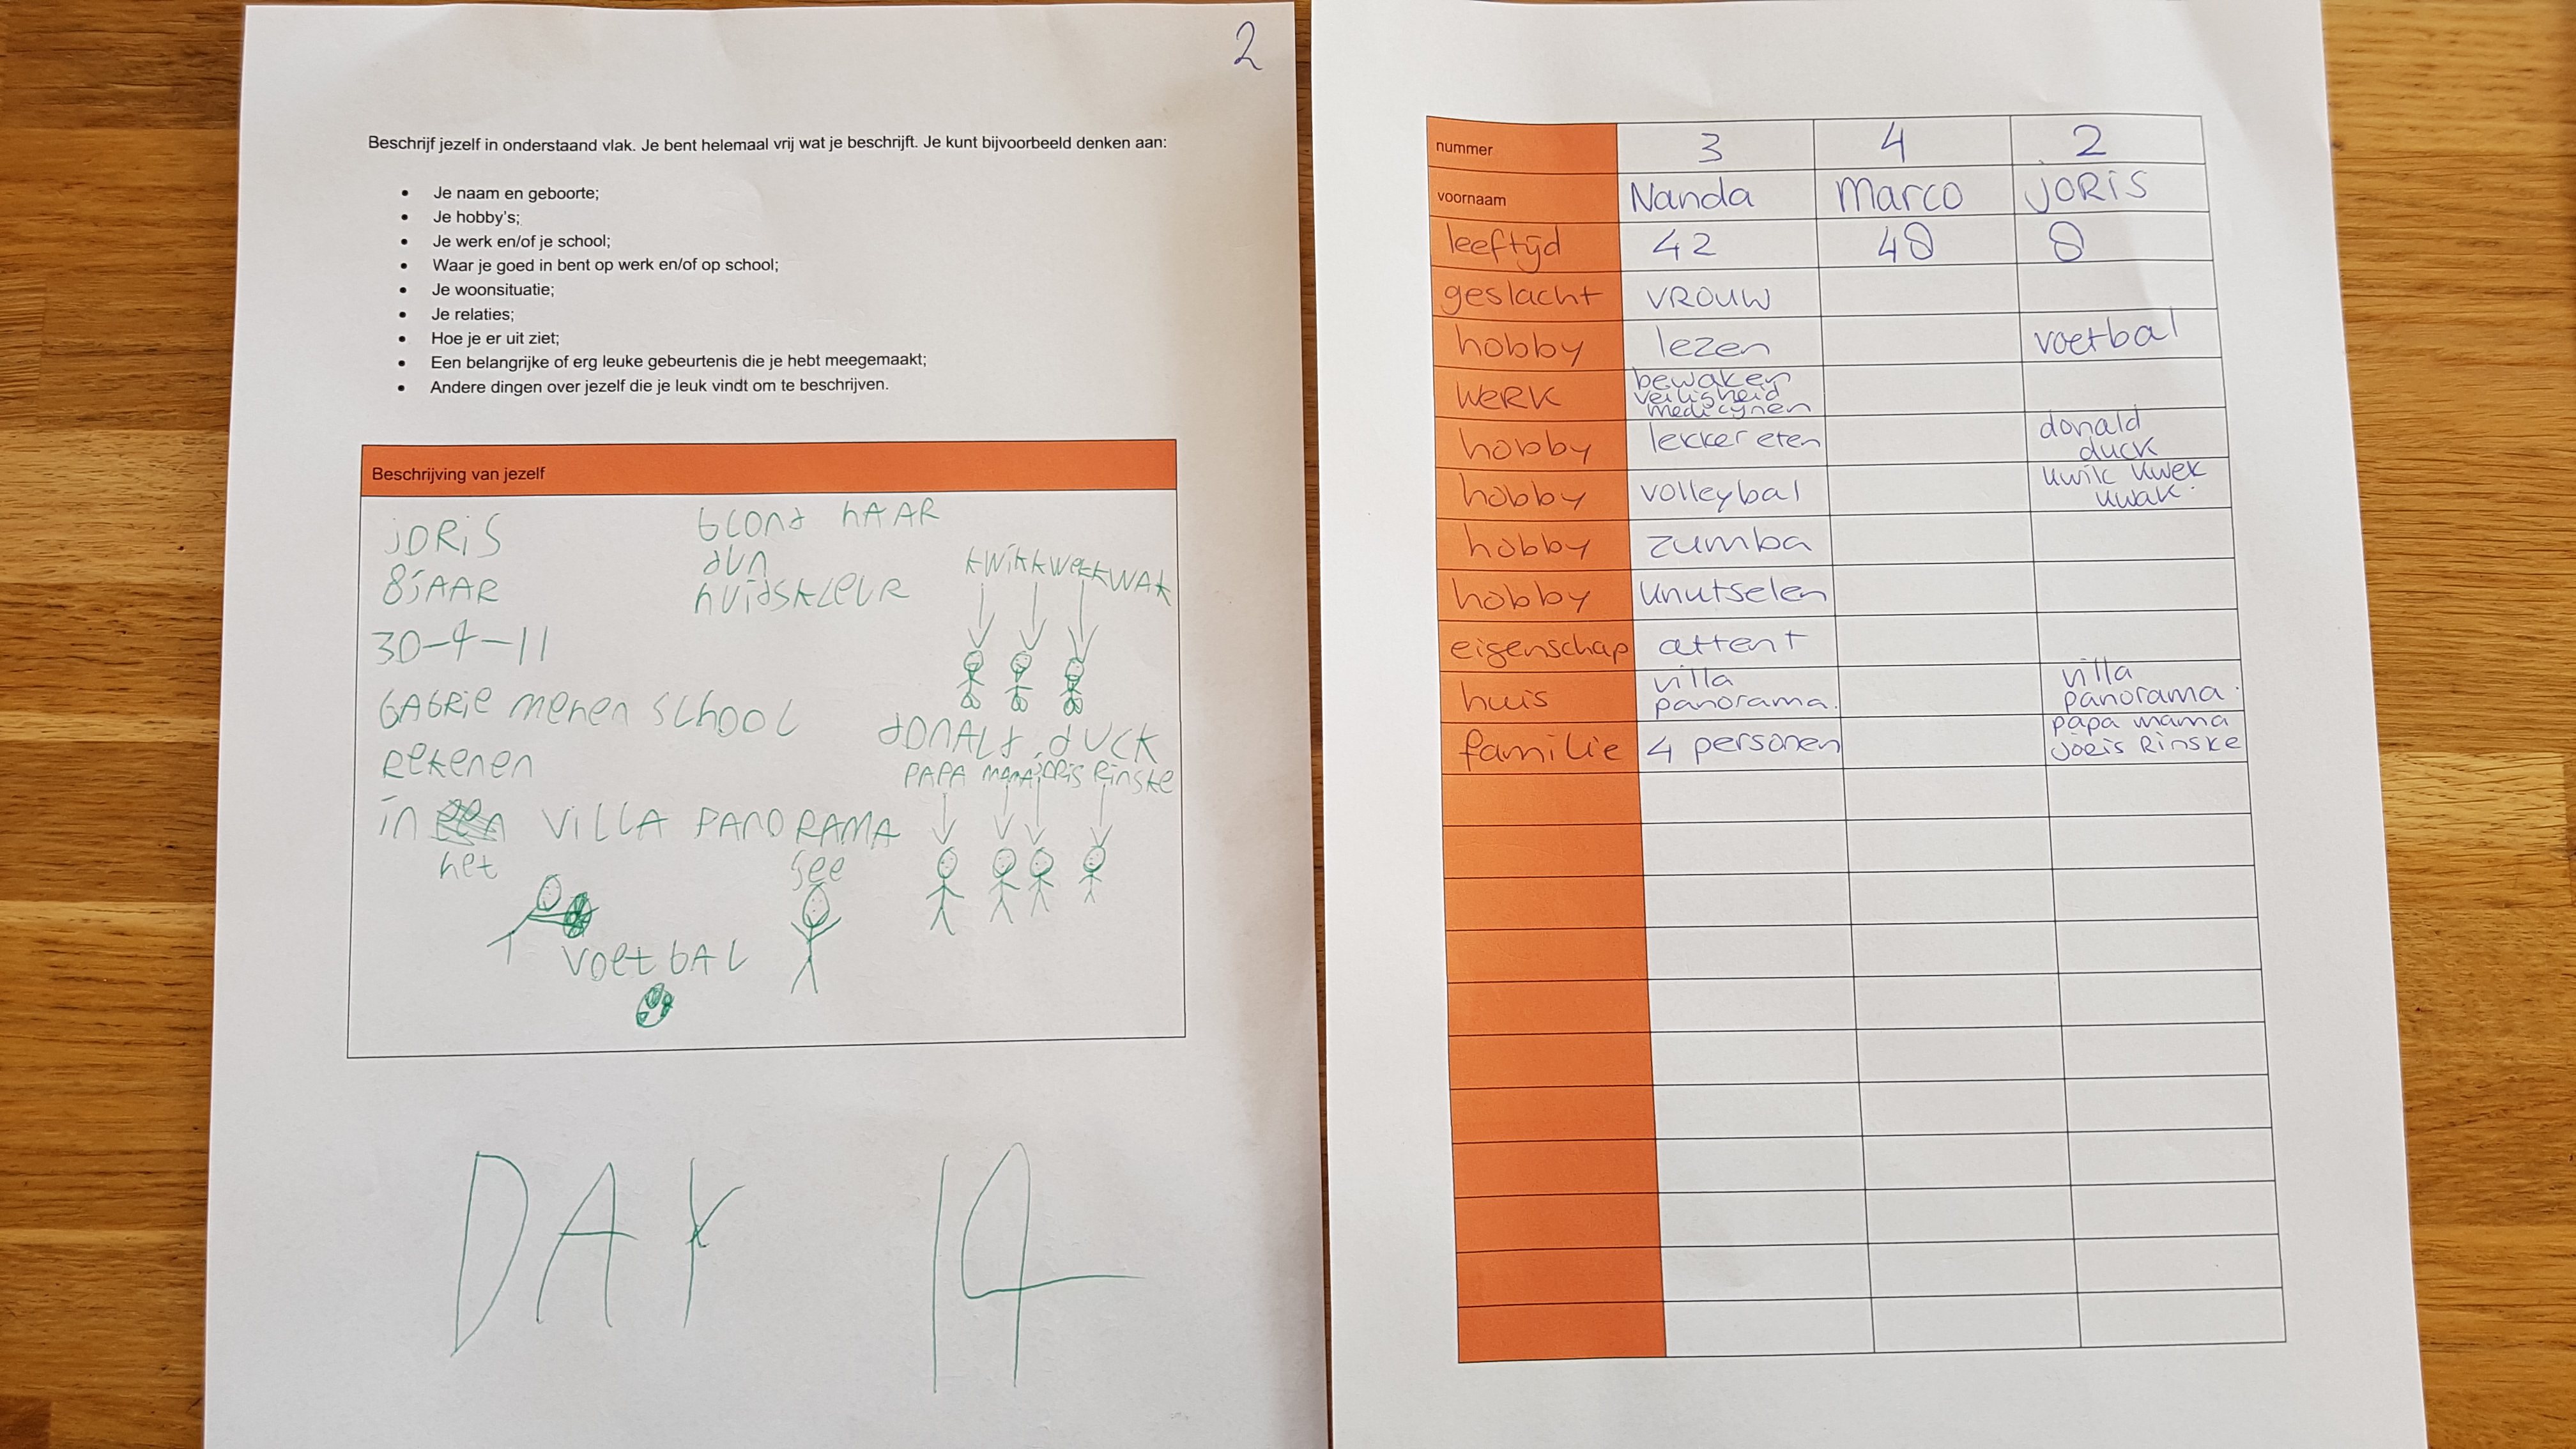 2
Beschrijf jezelf in onderstaand vlak. Je bent helemaal vrij wat je beschrijft. Je kunt bijvoorbeeld denken aan:
• Je naam en geboorte;
• Je hobby's;
• Je werk en/of je school;
• Waar je goed in bent op werk en/of op school;
• Je woonsituatie;
• Je relaties;
• Hoe je er uit ziet;
• Een belangrijke of erg leuke gebeurtenis die je hebt meegemaakt;
• Andere dingen over jezelf die je leuk vindt om te beschrijven.
Beschrijving van jezelf
jORiS
8jAAR
30-4-11
GAbRie menen SchooL
Rekenen
in het ViLLA PANORAMA
bLond hAAR
dun
huidskLeuR
kwik kwek kwAk
dONALd duck
PAPA mamA jORis Rinske
See
VoetbAL
DAY 14
nummer 3 4 2
voornaam Nanda Marco JORiS
leeftijd 42 48 8
geslacht VROUW
hobby lezen voetbal
WERK bewaken veiligheid medicijnen
hobby lekker eten donald duck
hobby volleybal kwik kwek kwak
hobby zumba
hobby knutselen
eigenschap attent
huis villa panorama. villa panorama.
familie 4 personen papa mama Joris Rinske